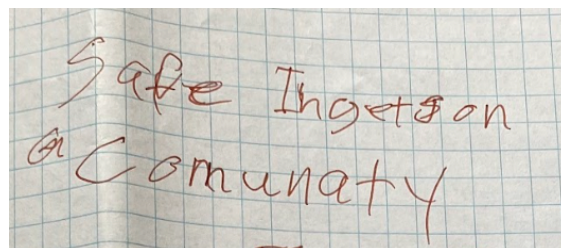 Safe Ingetson
a Comunaty